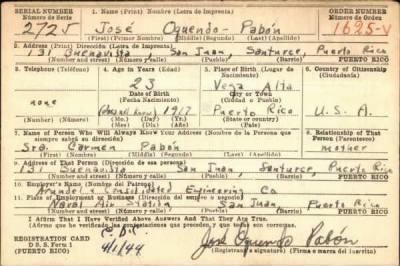 SERIAL NUMBER 1. Name (Print) Nombre (Letra de Imprenta) ORDER NUMBER
Número de Serie Número de Orden
2725 José Oquendo Pabón 1695-V
(First) (Primer Nombre) (Middle) (Segundo) (Last) (Apellido)
2. Address (Print) Dirección (Letra de Imprenta)
131 Buenavista, San Juan, Santurce, Puerto Rico
(Number) (Número) (Street) (Calle) (City or Town) (Ciudad o Pueblo) PUERTO RICO
3. Telephone (Teléfono) 4. Age in Years (Edad) 5. Place of Birth (Lugar de Nacimiento) 6. Country of Citizenship (Ciudadanía)
23 Vega Alta
Date of Birth City or Town
(Fecha Nacimiento) (Ciudad o Pueblo)
none 1917 Puerto Rico U. S. A.
(Number) (Número) (Mo.) (Mes) (Day) (Día) (Yr.) (Año)
7. Name of Person Who Will Always Know Your Address (Nombre de la Persona que siempre sabrá su dirección) 8. Relationship of That Person (Parentesco)
Sra. Carmen Pabón mother
(First) (Nombre) (Middle) (Segundo) (Last) (Apellido)
9. Address of That Person (Dirección de esa persona)
131 Buenavista San Juan, Santurce, Puerto Rico
(Number) (Número) (Street) (Calle) (City or Town) (Ciudad o Pueblo) (PUERTO RICO)
10. Employer's Name (Nombre del Patrono)
Arundel & Consolidated Engineering Co
11. Place of Employment or Business (Dirección del empleo o negocio)
Naval Air Station San Juan, Puerto Rico
(Number) (Número) (Street) (Calle) (City or Town) (Ciudad o Pueblo) (PUERTO RICO)
I Affirm That I Have Verified Above Answers And That They Are True.
(Afirmo que he verificado las contestaciones que preceden, y que son ciertas)
REGISTRATION CARD
D. S. S. Form 1
(PUERTO RICO)
4/1/44
José Oquendo Pabón
Registrant's signature) (Firma o marca del Inscrito)